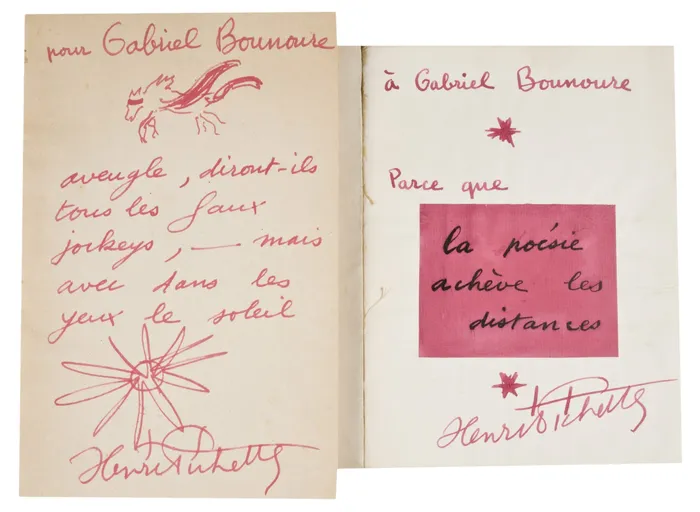 pour Gabriel Bounoure
aveugle, diront-ils
tous les faux
jockeys, — mais
avec dans les
yeux le soleil
Henri Pichette
à Gabriel Bounoure
Parce que
la poésie
achève les
distances
Henri Pichette